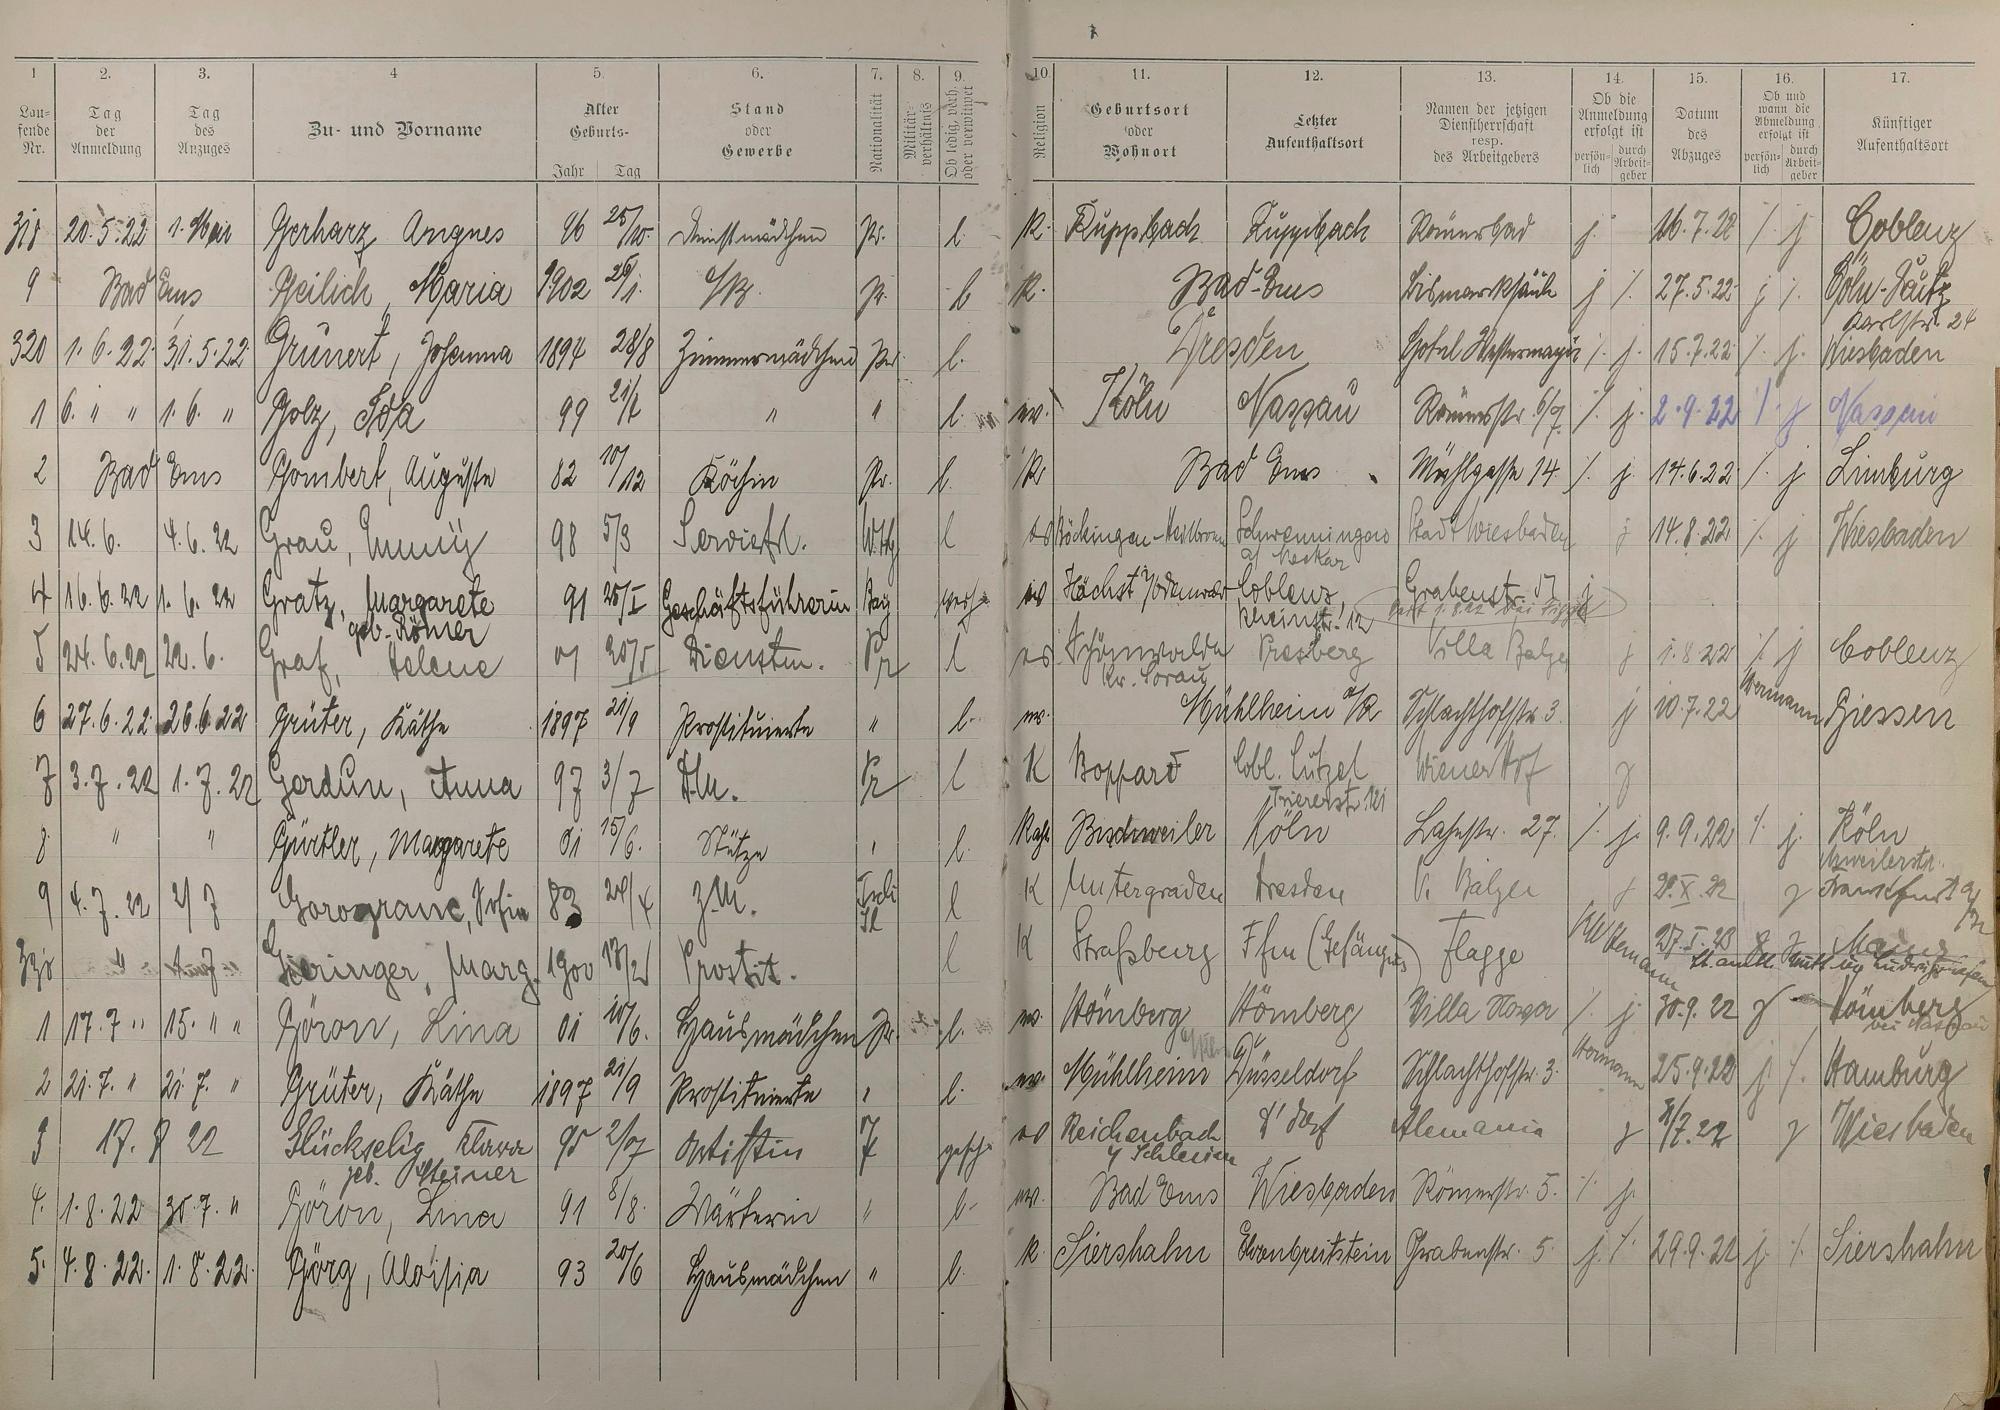 1 2. 3. 4 5. 6. 7. 8. 9. 10 11. 12. 13. 14. 15. 16. 17.
Lau-
fende
Nr.
Tag
der
Anmeldung
Tag
des
Anzuges
Zu- und Vorname
Alter
Geburts-
Jahr Tag
Stand
oder
Gewerbe
Nationalität
Militär-
verhältnis
Ob ledig, verh.
oder verwitwet
Religion
Geburtsort
oder
Wohnort
Letzter
Aufenthaltsort
Namen der jetzigen
Dienstherrschaft
resp.
des Arbeitgebers
Ob die
Anmeldung
erfolgt ist
persön-
lich
durch
Arbeit-
geber
Datum
des
Abzuges
Ob und
wann die
Abmeldung
erfolgt ist
persön-
lich
durch
Arbeit-
geber
Künftiger
Aufenthaltsort
318 20.5.22 1. Mai Gerharz Angnes 96 25/10. Dienstmädchen Pr. l. K. Ruppbach Ruppbach Römerbad j. 16.7.22 /. j Coblenz
9 Bad Ems Geilich, Maria 1902 /1. Pr. l K. Bad-Ems Bismarksäule j /. 27.5.22 j /. Köln-Deutz
Karlstr. 24
320 1.6.22 31.5.22 Grünert, Johanna 1894 28/8 Zimmermädchen Pr. l. Dresden Hotel Westermayer /. j. 15.7.22 /. j. Wiesbaden
1 6. " " 1.6. " Golz, Ida 99 21/7 " " l. ev. Köln Nassau Römerstr. 6/7 /. j. 2.9.22 /. j Nassau
2 Bad Ems Gombert, Auguste 82 10/12 Köchin Pr. l. K Bad Ems Mühlgasse 14. /. j. 14.6.22 /. j Limburg
3 14.6. 4.6.22 Grau, Emmy 98 5/3 Servierfrl. Wttg l ev Böckingen-Heilbronn Schwenningen Stadt Wiesbaden j 14.8.22 /. j Wiesbaden
a/ Neckar
4 16.6.22 1.6.22 Gratz, Margarete 91 /I Geschäftsführerin Bay ev Höchst Odenwald Coblenz, Grabenstr. 57 j
geb. Römer Rheinstr. 12
5 24.6.22 22.6. Graf, Helene 01 /5 Dienstm. Pr l ev Schönwalde Presberg Villa Balzer j 1.8.22 /. j Coblenz
Kr. Sorau
6 27.6.22 26.6.22 Grüter, Käthe 1897 21/9 Prostituierte " l. ev. Mühlheim a/R Schlachthofstr. 3. j 10.7.22 Giessen
7 3.7.22 1.7.22 Gordun, Anna 97 3/7 D.M. Pr l K Boppard Cobl. Lützel Wiener Hof j
Triererstr. 121
8 " " Gürtler, Margarete 01 15/6. Stütze " l. Kath. Bischweiler Köln Lahnstr. 27. /. j. 9.9.22 /. j. Köln
9 4.7.22 2/7 Gorogranc, Sofia 83 /4 Z.M. l K Untergraden Dresden V. Balzer j 2.X.22 j
330 " Gieringer, Marg. 1900 /2 Prostit. l K Straßberg Ffm (Gefängnis) Flagge 27.I.23 Mainz
1 17.7 " 15. " " Göron, Lina 01 10/6. Hausmädchen Pr. l. ev. Hömberg Hömberg Villa /. j. 30.9.22 Hömberg
bei Nassau
2 21.7. " 21.7. " Grüter, Käthe 1897 21/9 Prostituierte " l. ev. Mühlheim Düsseldorf Schlachthofstr. 3. 25.9.22 j. /. Hamburg
3 17. 7 22 Glückselig Klara 95 2/07 Artistin gesch. ev Reichenbach D'dorf Alemania j /7.22 j Wiesbaden
geb. Steiner i/ Schlesien
4. 1.8.22 30.7. " Göron, Lina 91 8/8. Wärterin " l. ev. Bad Ems Wiesbaden Römerstr. 5. /. j.
5. 4.8.22. 1.8.22. Görg, Aloisia 93 20/6 Hausmädchen " l. K. Siershahn Ehrenbreitstein Grabenstr. 5. j. /. 29.9.22 j. /. Siershahn